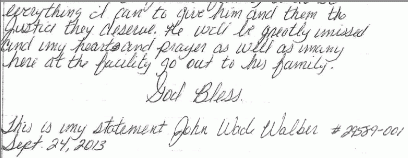 everything I can to give him and them the
justice they deserve. He will be greatly missed
and my heart and prayer as well as many
here at the facility go out to his family.
God Bless.
This is my statement John Wad Walber # 29589-001
Sept 24, 2013